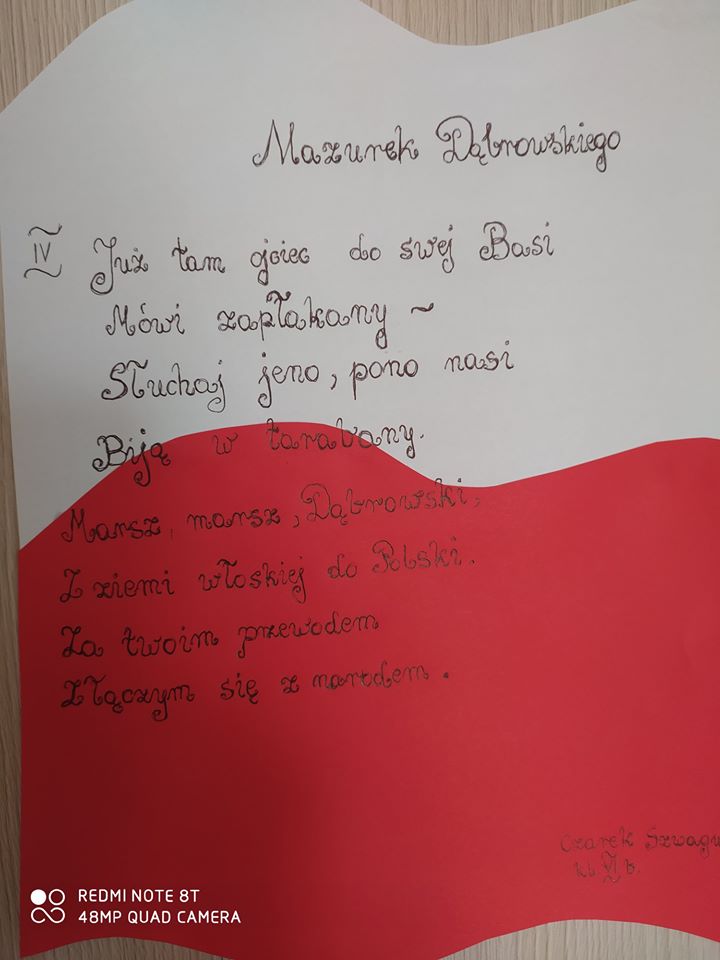 Mazurek Dąbrowskiego
IV
Już tam ojciec do swej Basi
Mówi zapłakany ~
Słuchaj jeno, pono nasi
Biją w tarabany.
Marsz, marsz, Dąbrowski,
Z ziemi włoskiej do Polski.
Za twoim przewodem
Złączym się z narodem.
Czarek Szwagr
kl. VI b.
REDMI NOTE 8T
48MP QUAD CAMERA